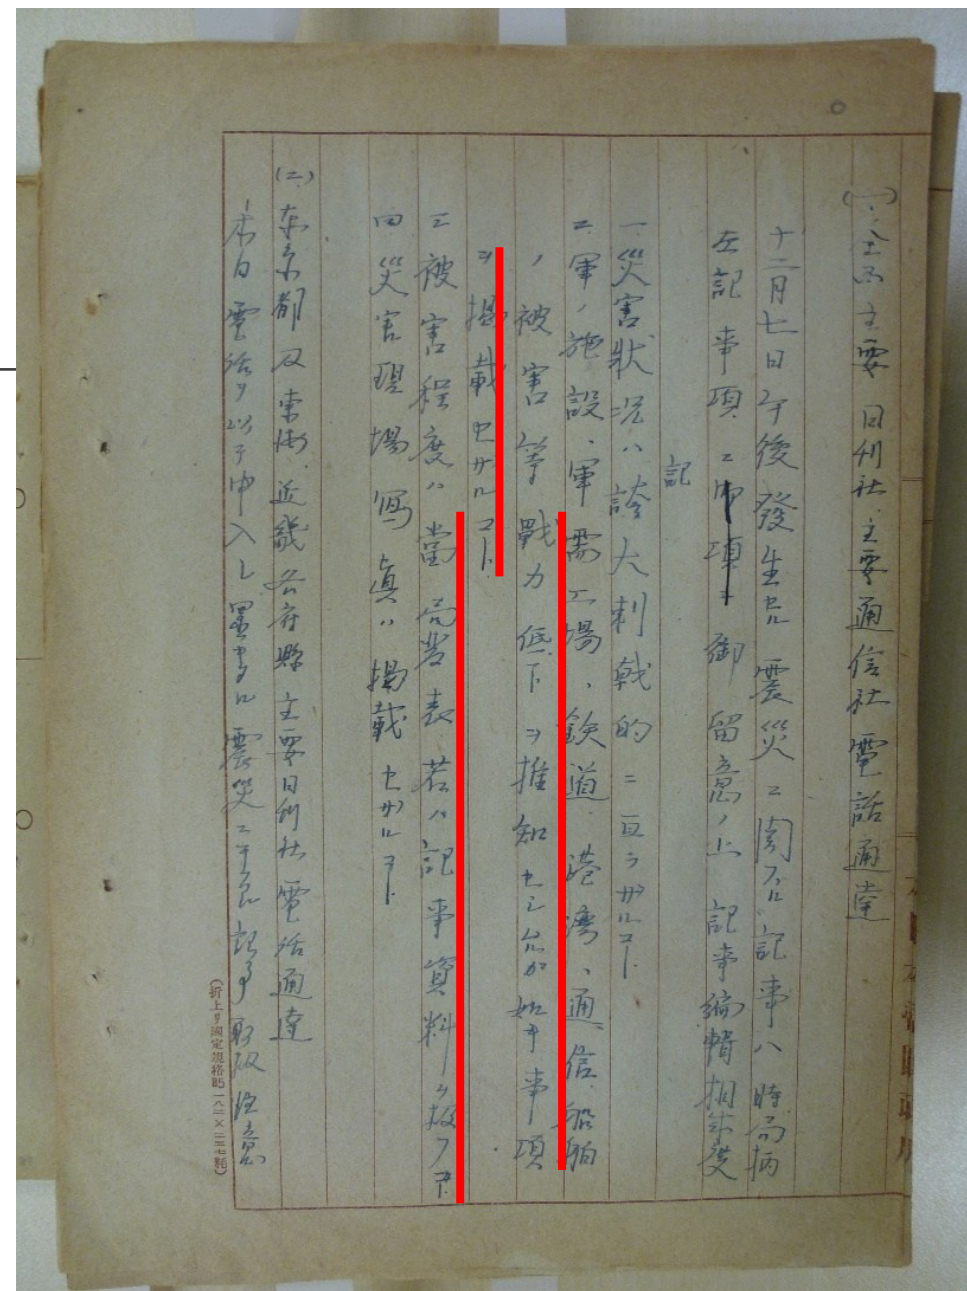 (一)、全国主要日刊社、主要通信社電話通達
十二月七日午後發生セル震災ニ関スル記事ハ時局柄
左記事項ニ御留意ノ上記事編輯相成度
記
一、災害状況ハ誇大刺戟的ニ亘ラザルコト
二、軍ノ施設、軍需工場、鉄道、港湾、通信、船舶
ノ被害等戰力低下ヲ推知セシムルガ如キ事項
ヲ掲載セザルコト
三、被害程度ハ當局発表若ハ記事資料ヲ扱フコト
四、災害現場写眞ハ掲載セザルコト
(二)、東京都及東海、近畿各府縣主要日刊社電話通達
本日電話ヲ以テ申入レ置キタル震災ニ関スル記事取扱注意